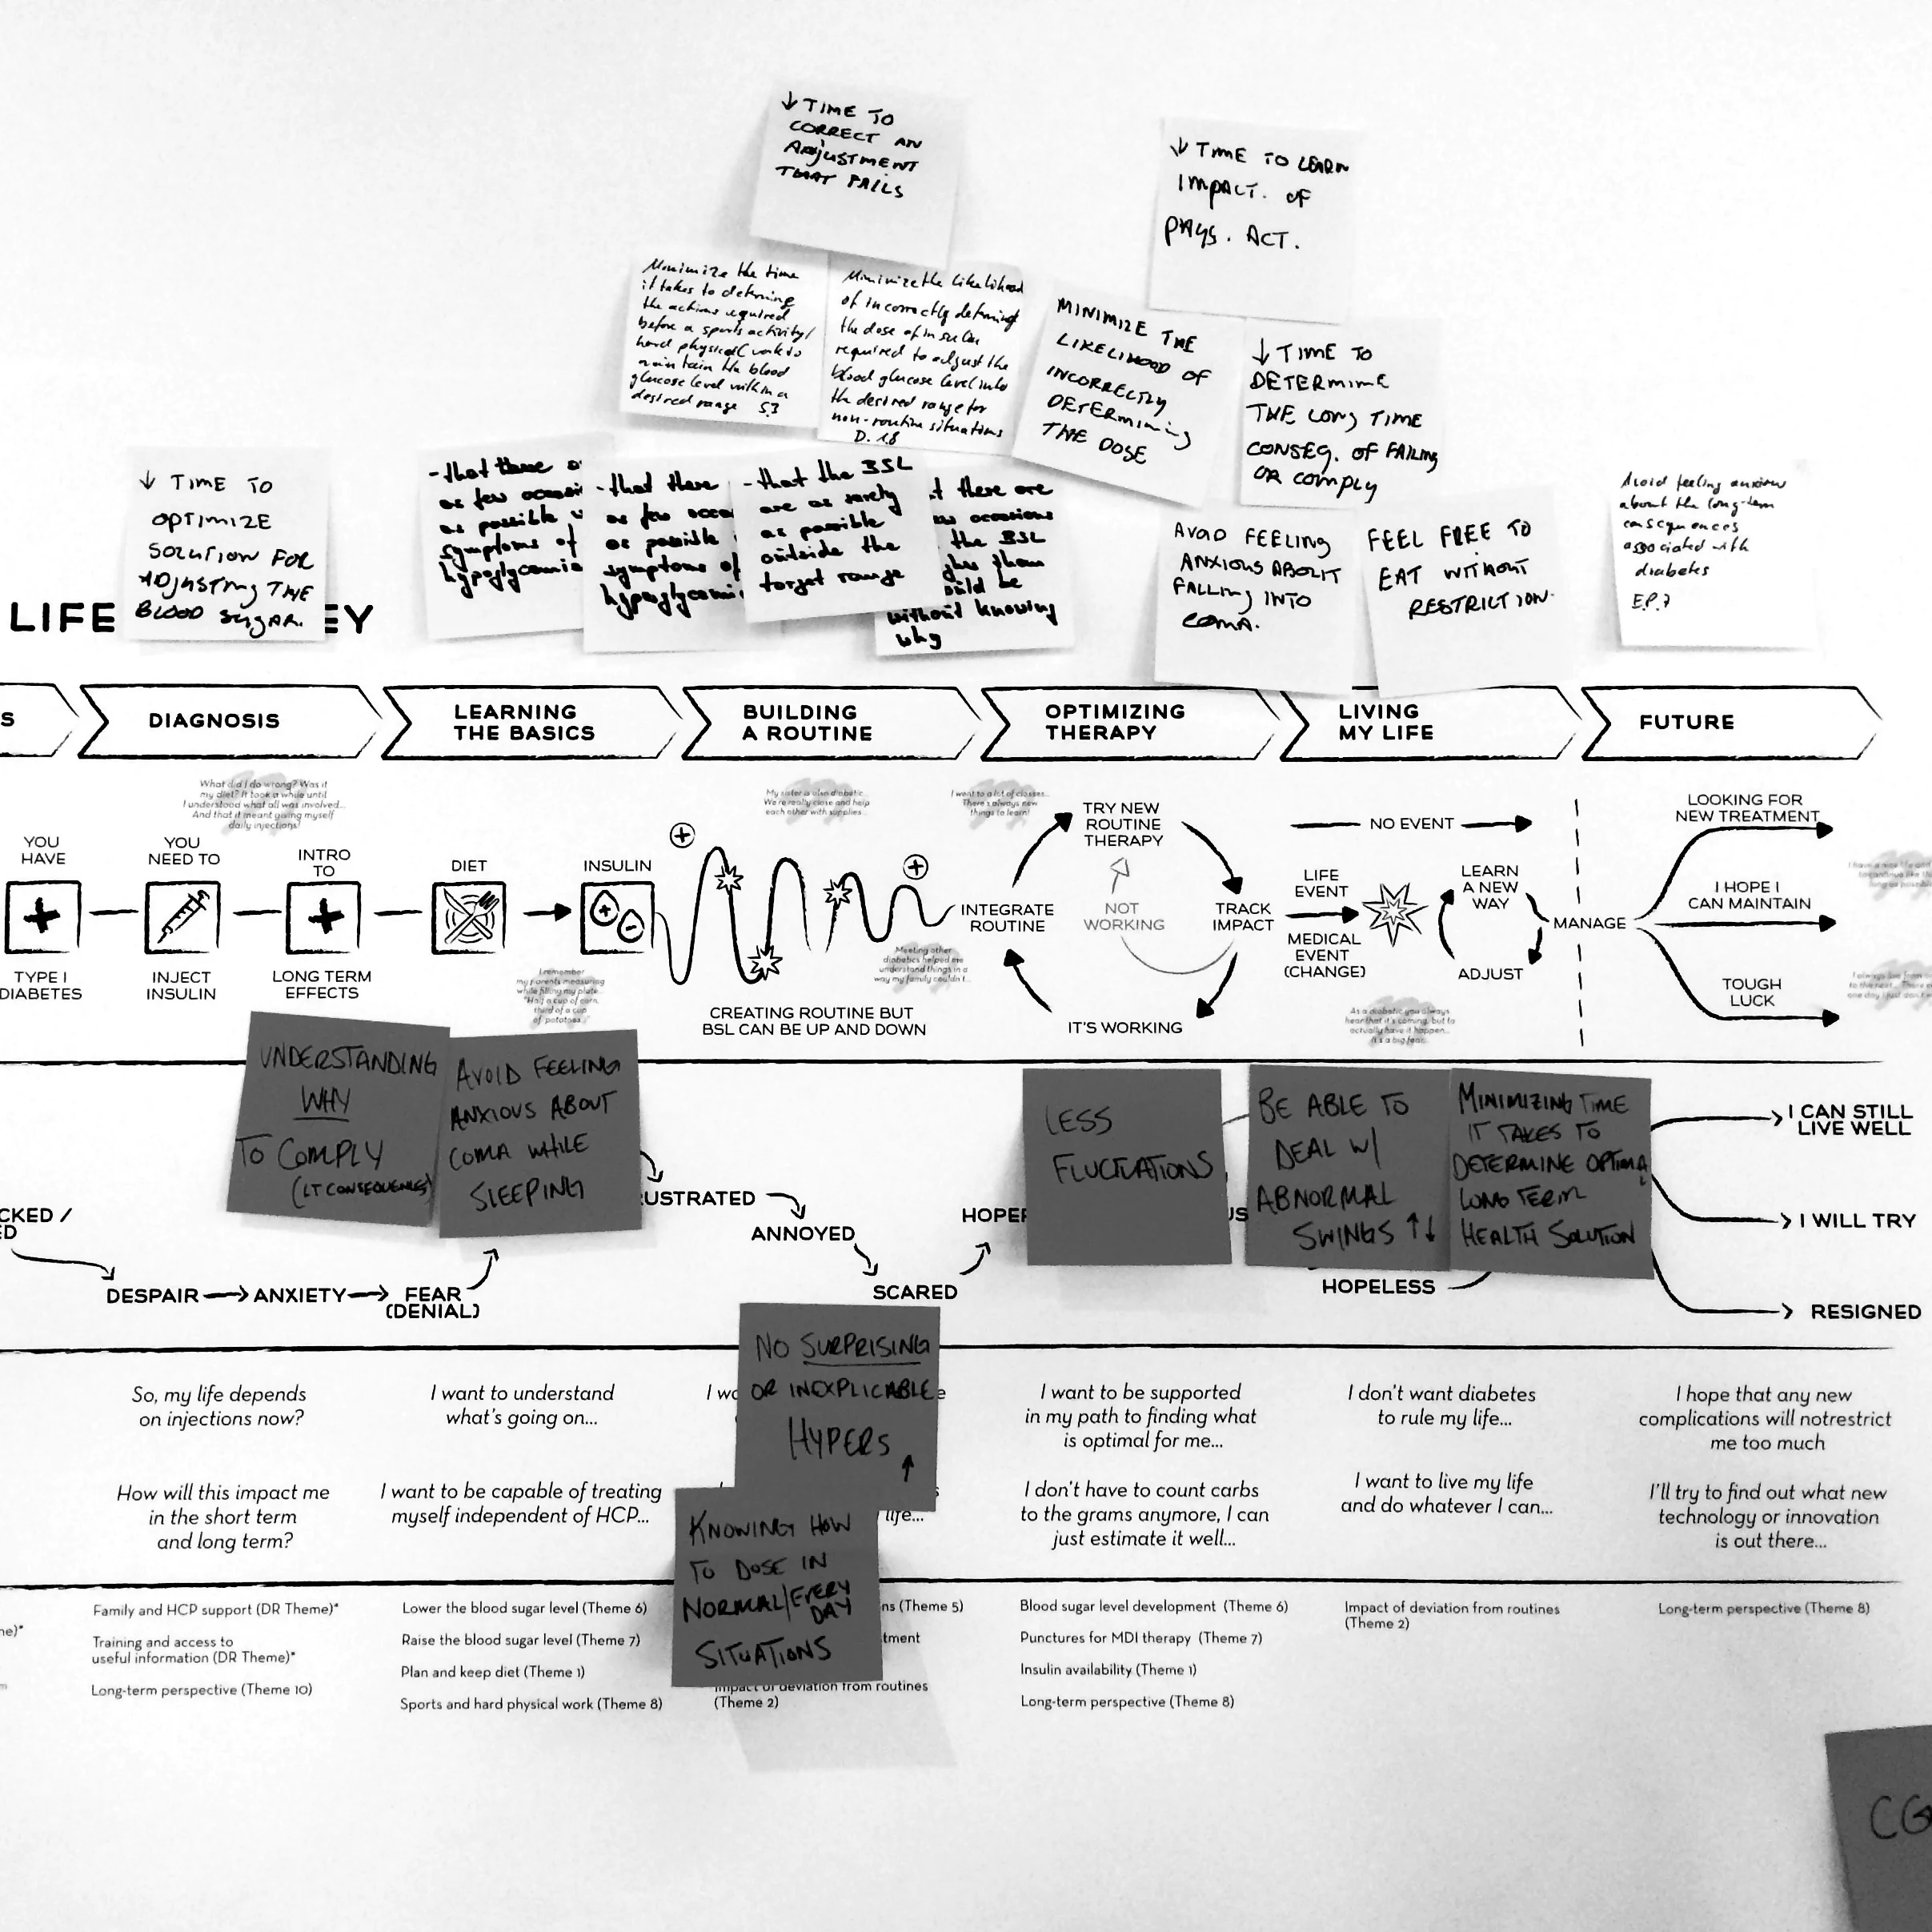 ↓ TIME TO
CORRECT AN
ADJUSTMENT
THAT FAILS
↓ TIME TO LEARN
IMPACT. OF
PHYS. ACT.
Minimize the time
it takes to determine
the actions required
before a sports activity/
hard physical work to
maintain the blood
glucose level within a
desired range S.3
Minimize the likelihood
of incorrectly determing
the dose of insulin
required to adjust the
blood glucose level into
the desired range for
non-routine situations
D. 18
MINIMIZE THE
LIKELIHOOD OF
INCORRECTLY
DETERMINING
THE DOSE
↓ TIME TO
DETERMINE
THE LONG TIME
CONSEQ. OF FAILING
OR COMPLY
↓ TIME TO
OPTIMIZE
SOLUTION FOR
ADJUSTING THE
BLOOD SUGAR.
- that there
as few
as possible
symptoms of
hypoglycamia
- that there
as few
as possible
symptoms of
- that the BSL
are as rarely
as possible
outside the
target range
there are
occasions
the BSL
than
without knowing
why
AVOID FEELING
ANXIOUS ABOUT
FALLING INTO
COMA.
FEEL FREE TO
EAT WITHOUT
RESTRICTION.
Avoid feeling anxious
about the long-term
consequences
associated with
diabetes
E.P.7
LIFE EY
S
DIAGNOSIS
LEARNING
THE BASICS
BUILDING
A ROUTINE
OPTIMIZING
THERAPY
LIVING
MY LIFE
FUTURE
What did I do wrong? Was it
my diet? It took a while until
I understood what all was involved...
And that it meant giving myself
daily injections
My sister is also diabetic...
We're really close and help
each other with supplies...
I went to a lot of classes...
There's always new
things to learn!
YOU
HAVE
TYPE I
DIABETES
YOU
NEED TO
INJECT
INSULIN
INTRO
TO
LONG TERM
EFFECTS
DIET
I remember
my parents measuring
while filling my plate.
"Half a cup of corn,
third of a cup
of potatoes..."
INSULIN
CREATING ROUTINE BUT
BSL CAN BE UP AND DOWN
Meeting other
diabetics helped me
understand things in a
way my family couldn't...
INTEGRATE
ROUTINE
TRY NEW
ROUTINE
THERAPY
NOT
WORKING
TRACK
IMPACT
IT'S WORKING
NO EVENT
LIFE
EVENT
MEDICAL
EVENT
(CHANGE)
LEARN
A NEW
WAY
ADJUST
As a diabetic you always
hear that it's coming, but to
actually have it happen...
it's a big fear...
MANAGE
LOOKING FOR
NEW TREATMENT
I HOPE I
CAN MAINTAIN
TOUGH
LUCK
UNDERSTANDING
WHY
TO COMPLY
(LT CONSEQUENCES)
AVOID FEELING
ANXIOUS ABOUT
COMA WHILE
SLEEPING
LESS
FLUCTUATIONS
BE ABLE TO
DEAL W/
ABNORMAL
SWINGS ↑↓
MINIMIZING TIME
IT TAKES TO
DETERMINE OPTIMAL
LONG TERM
HEALTH SOLUTION
CKED /
ED
DESPAIR
ANXIETY
FEAR
(DENIAL)
RUSTRATED
ANNOYED
SCARED
HOPEF
US
HOPELESS
I CAN STILL
LIVE WELL
I WILL TRY
RESIGNED
NO SURPRISING
OR INEXPLICABLE
HYPERS ↑
KNOWING HOW
TO DOSE IN
NORMAL/EVERY
DAY
SITUATIONS
So, my life depends
on injections now?
How will this impact me
in the short term
and long term?
I want to understand
what's going on...
I want to be capable of treating
myself independent of HCP...
life...
I want to be supported
in my path to finding what
is optimal for me...
I don't have to count carbs
to the grams anymore, I can
just estimate it well...
I don't want diabetes
to rule my life...
I want to live my life
and do whatever I can...
I hope that any new
complications will notrestrict
me too much
I'll try to find out what new
technology or innovation
is out there...
Family and HCP support (DR Theme)*
Training and access to
useful information (DR Theme)*
Long-term perspective (Theme 10)
Lower the blood sugar level (Theme 6)
Raise the blood sugar level (Theme 7)
Plan and keep diet (Theme 1)
Sports and hard physical work (Theme 8)
ns (Theme 5)
tment
Impact of deviation from routines
(Theme 2)
Blood sugar level development (Theme 6)
Punctures for MDI therapy (Theme 7)
Insulin availability (Theme 1)
Long-term perspective (Theme 8)
Impact of deviation from routines
(Theme 2)
Long-term perspective (Theme 8)